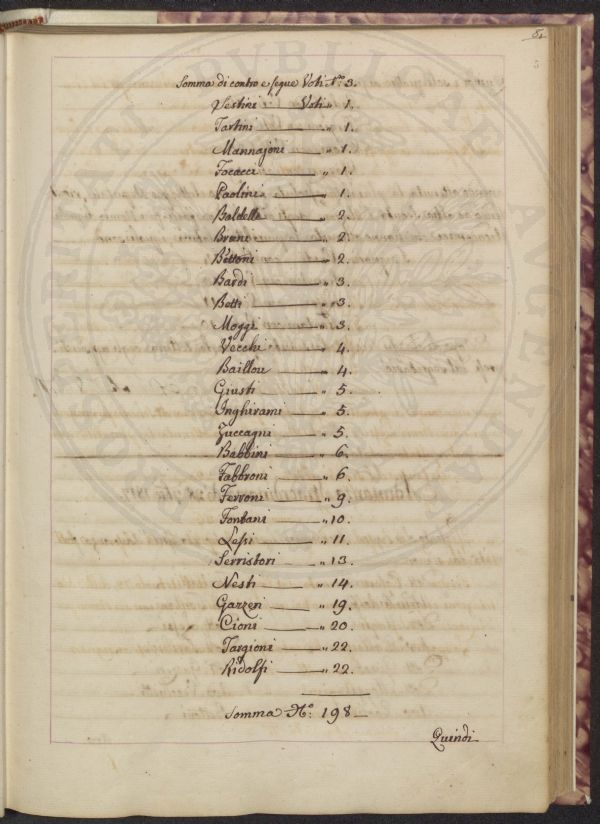 5.
Somma di contro e segue Voti N.º 3.
Sestini Voti „ 1.
Tartini „ 1.
Mannajoni „ 1.
Focacci „ 1.
Paolini „ 1.
Baldelli „ 2.
Breeni „ 2.
Bettoni „ 2.
Bardi „ 3.
Betti „ 3.
Moggi „ 3.
Vecchi „ 4.
Baillou „ 4.
Giusti „ 5.
Inghirami „ 5.
Zuccagni „ 5.
Babbini „ 6.
Fabbroni „ 6.
Ferroni „ 9.
Fontani „ 10.
Lessi „ 11.
Serristori „ 13.
Nesti „ 14.
Gazzeri „ 19.
Cioni „ 20.
Targioni „ 22.
Ridolfi „ 22.
Somma N.º 198
Quindi